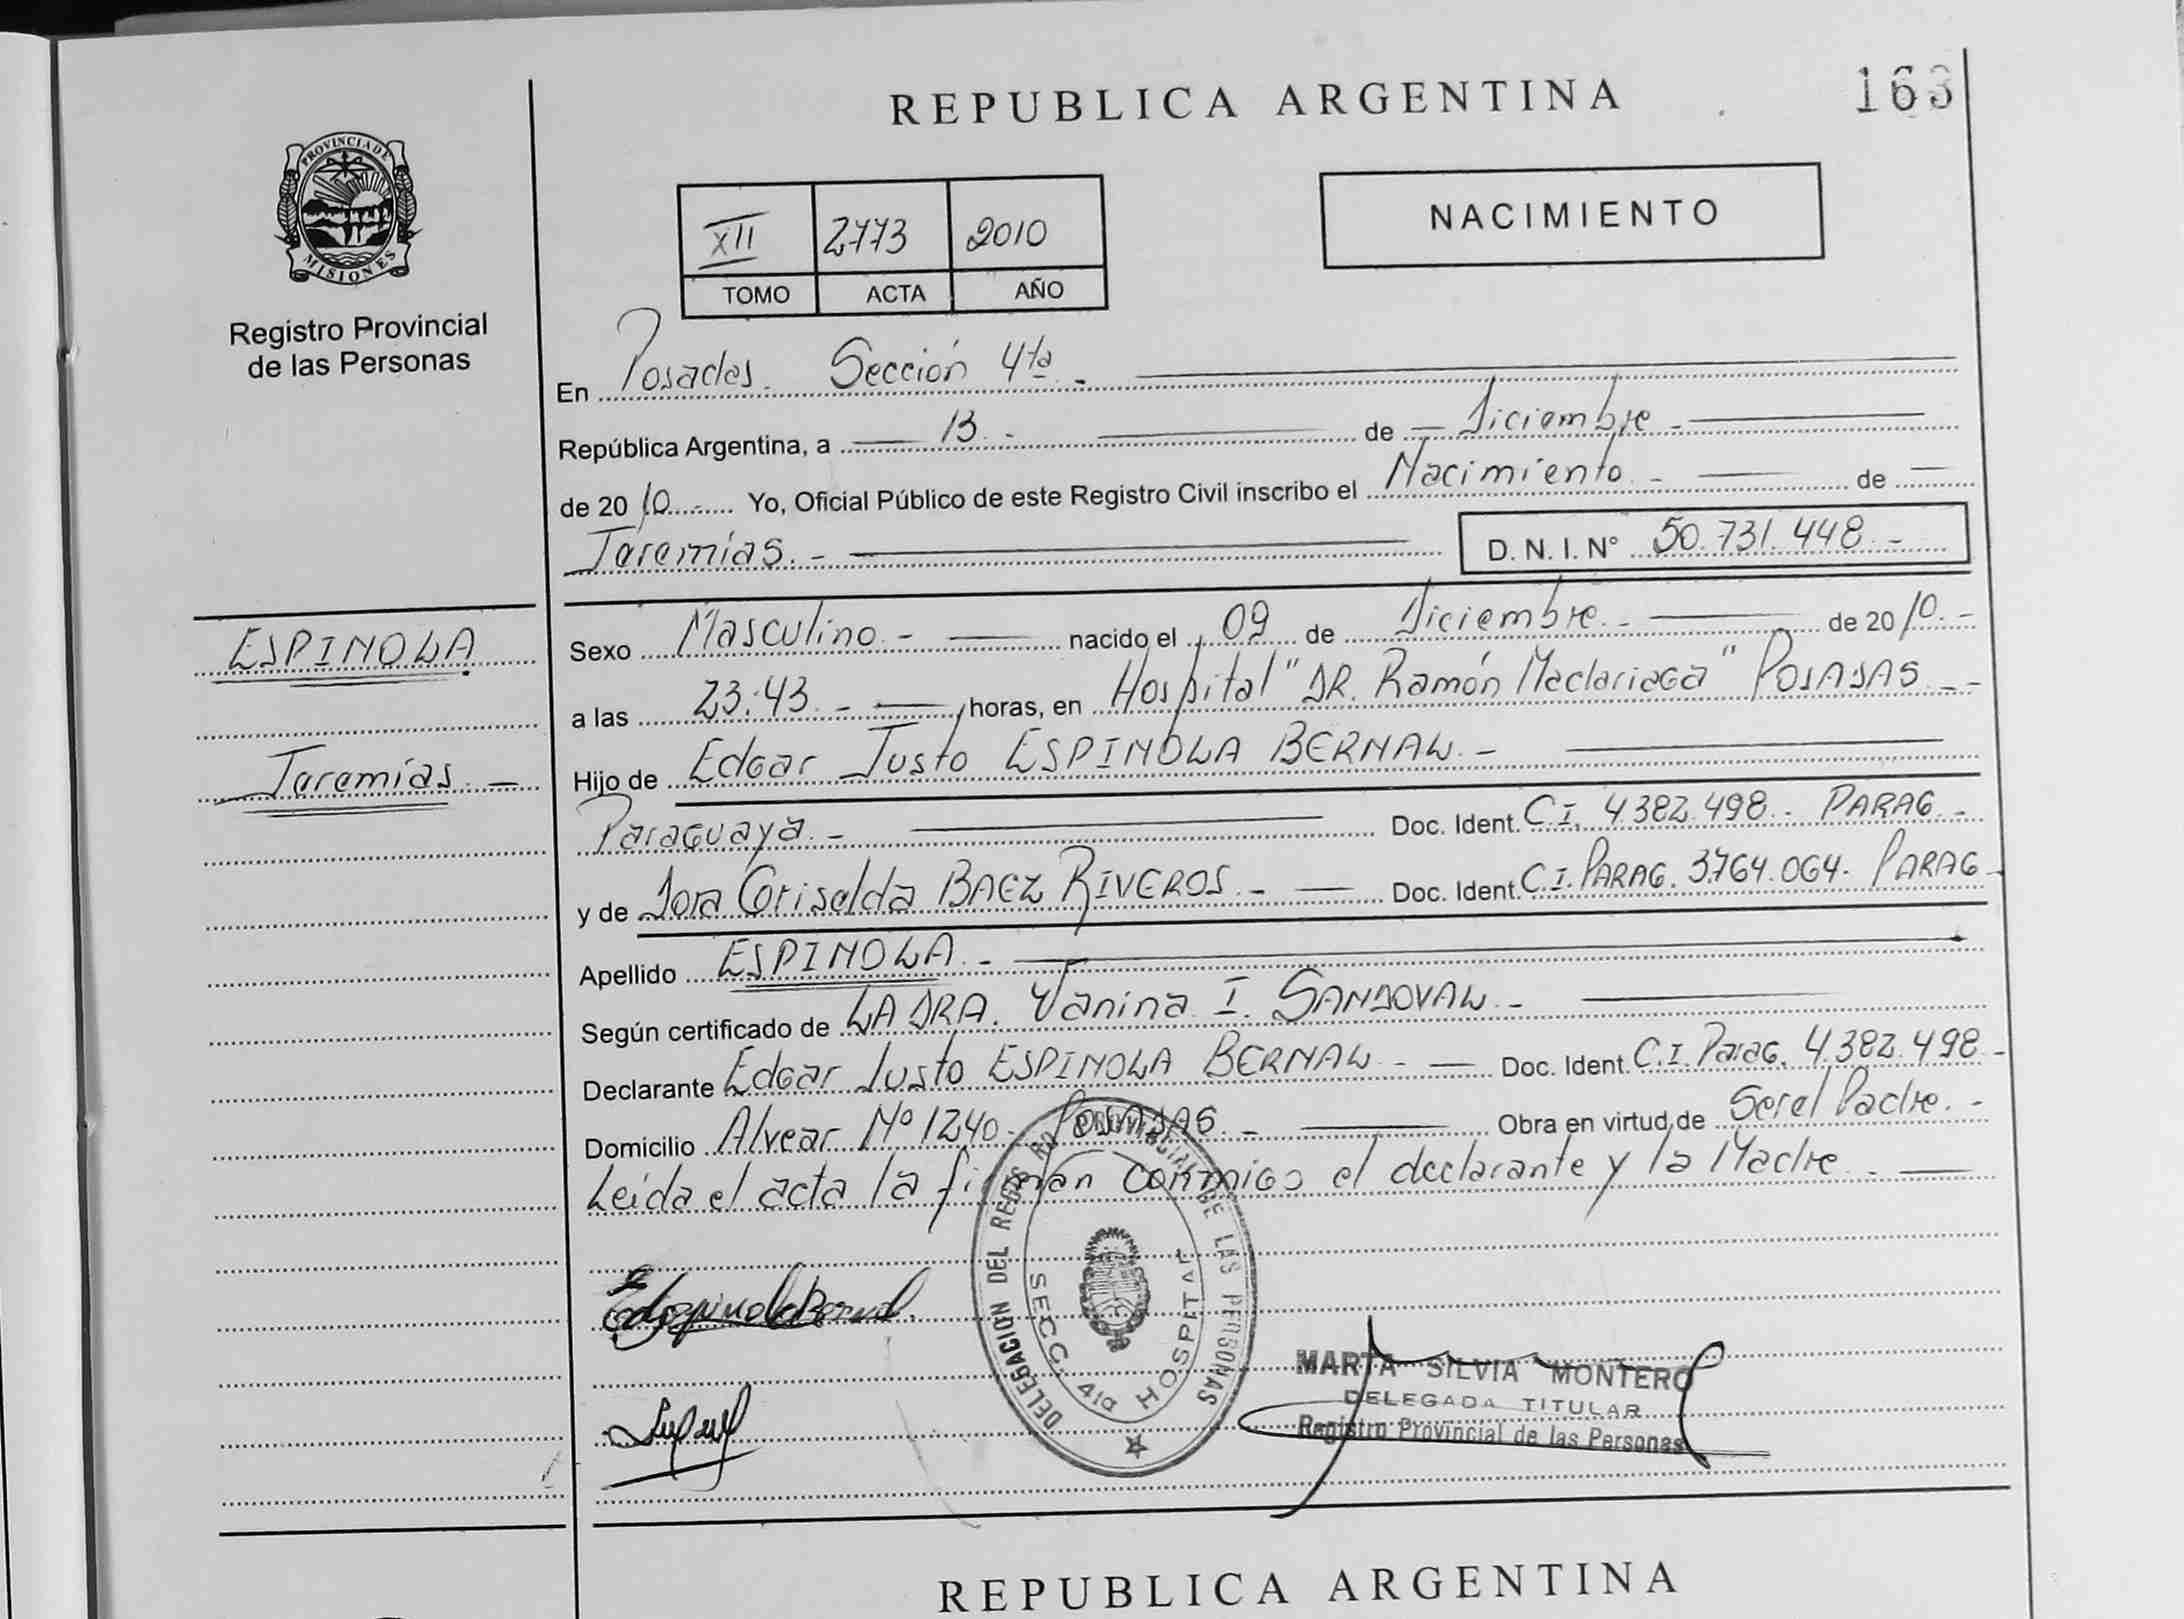 REPUBLICA ARGENTINA
163
PROVINCIA DE MISIONES
Registro Provincial
de las Personas
XII 2773 2010
TOMO ACTA AÑO
NACIMIENTO
En Posadas. Sección 4ta -
República Argentina, a 13 - de Diciembre -
de 2010 Yo, Oficial Público de este Registro Civil inscribo el Nacimiento - de
Jeremías. -
D. N. I. N° 50.731.448 -
ESPINOLA
Jeremías. -
Sexo Masculino. - nacido el 09 de Diciembre. - de 2010. -
a las 23:43. - horas, en Hospital "DR. Ramón Madariaga" POSADAS -
Hijo de Edgar Justo ESPINOLA BERNAL -
Paraguaya. - Doc. Ident. C.I. 4382.498. - PARAG. -
y de Coriselda BAEZ RIVEROS. - Doc. Ident. C.I. PARAG. 3.764.064. PARAG -
Apellido ESPINOLA. -
Según certificado de LA DRA. Vanina I. SANDOVAL -
Declarante Edgar Justo ESPINOLA BERNAL - Doc. Ident. C.I. Parag. 4.382.498 -
Domicilio Alvear Nº 1240 - POSADAS. - Obra en virtud de Ser el Padre. -
Leída el acta la firman conmigo el declarante y la Madre -
DELEGACION DEL REGISTRO PROVINCIAL DE LAS PERSONAS
SECC. 4ta HOSPITAL
MARTA SILVIA MONTERO
DELEGADA TITULAR
Registro Provincial de las Personas
REPUBLICA ARGENTINA